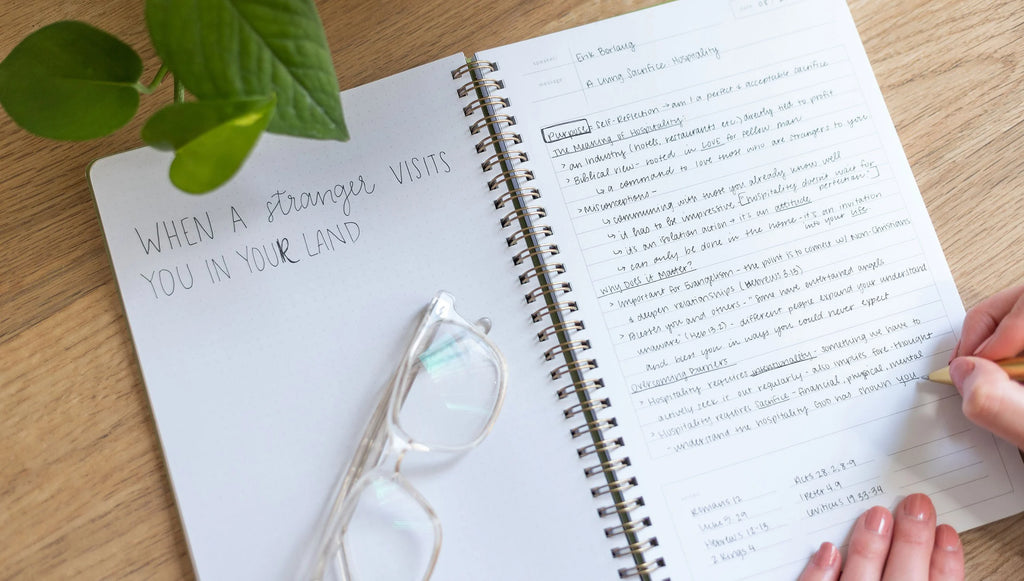 WHEN A stranger VISITS
YOU IN YOUR LAND
Erik Borlaug
message
A Living Sacrifice: Hospitality
Purpose: Self-Reflection → am I a perfect & acceptable sacrifice
The Meaning of Hospitality:
> an Industry (hotels, restaurants etc.) directly tied to profit
> Biblical view - rooted in LOVE for fellow man
↳ a command to love those who are strangers to you
> Misconceptions -
↳ communing with those you already know well
↳ it has to be impressive [hospitality doesn't wait for
perfection."]
↳ it's an isolation action → it's an attitude
↳ can only be done in the home - it's an invitation
into your life
Why Does it Matter?
> Important for Evangelism - the point is to connect w/ Non-Christians
& deepen relationships (Hebrews 3:13)
> Blesses you and others - "some have entertained angels
unaware" (Heb 13:2) - different people expand your understand
and bless you in ways you could never expect
Overcoming Barriers
> Hospitality requires intentionality - something we have to
actively seek it out regularly - also implies fore-thought
> Hospitality requires sacrifice - financial, physical, mental
- understand the hospitality God has shown you
Romans 12
Luke 5:29
Hebrews 12-13
2 Kings 4
Acts 28:2, 8-9
1 Peter 4:9
Leviticus 19:33-34